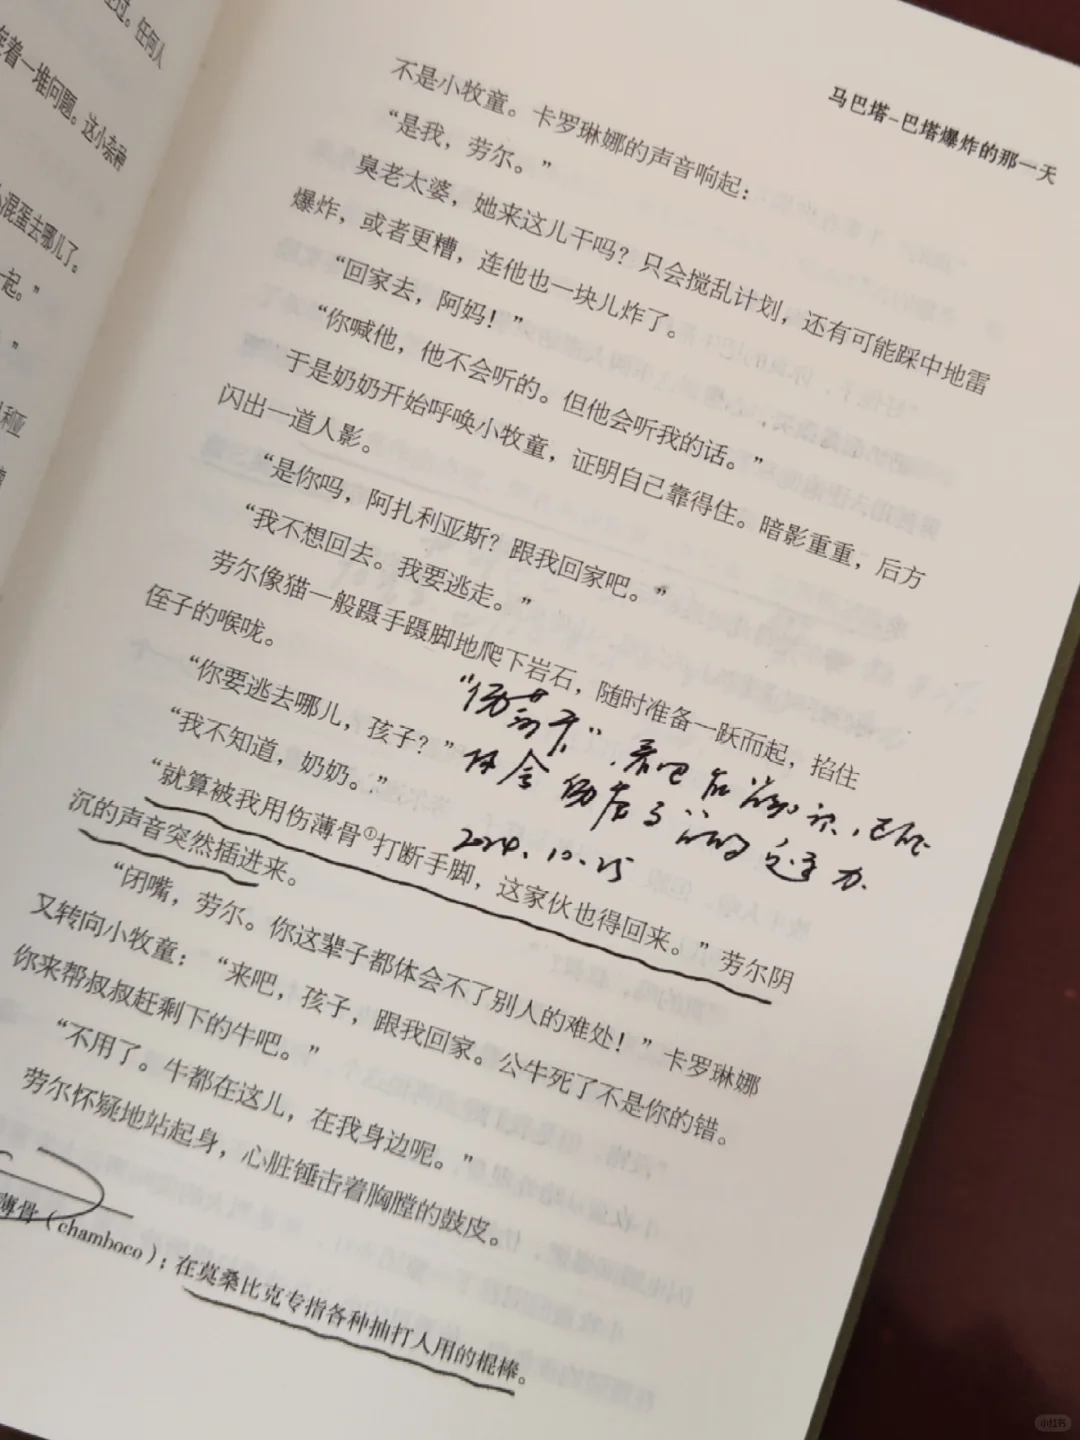 过。任何人
着一堆问题。这小杂种
混蛋去哪儿了。
一起。”
”
利亚
马巴塔-巴塔爆炸的那一天
不是小牧童。卡罗琳娜的声音响起：
“是我，劳尔。”
臭老太婆，她来这儿干吗？只会搅乱计划，还有可能踩中地雷
爆炸，或者更糟，连他也一块儿炸了。
“回家去，阿妈！”
“你喊他，他不会听的。但他会听我的话。”
于是奶奶开始呼唤小牧童，证明自己靠得住。暗影重重，后方
闪出一道人影。
“是你吗，阿扎利亚斯？跟我回家吧。”
“我不想回去。我要逃走。”
劳尔像猫一般蹑手蹑脚地爬下岩石，随时准备一跃而起，掐住
侄子的喉咙。
“你要逃去哪儿，孩子？”
“我不知道，奶奶。”
“就算被我用伤薄骨①打断手脚，这家伙也得回来。”劳尔阴
沉的声音突然插进来。
2024.10.25
“闭嘴，劳尔。你这辈子都体会不了别人的难处！”卡罗琳娜
又转向小牧童：“来吧，孩子，跟我回家。公牛死了不是你的错。
你来帮叔叔赶剩下的牛吧。”
“不用了。牛都在这儿，在我身边呢。”
劳尔怀疑地站起身，心脏锤击着胸膛的鼓皮。
薄骨（chamboco）：在莫桑比克专指各种抽打人用的棍棒。
小红书